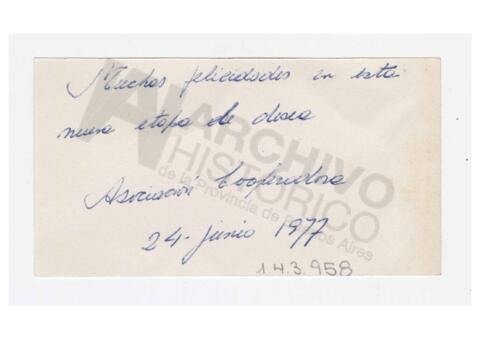 Muchas felicidades en esta
nueva etapa le desea
Asociación Cooperadora
24 - junio 1977
1.4.3.958
ARCHIVO
HISTÓRICO
de la Provincia de Buenos Aires